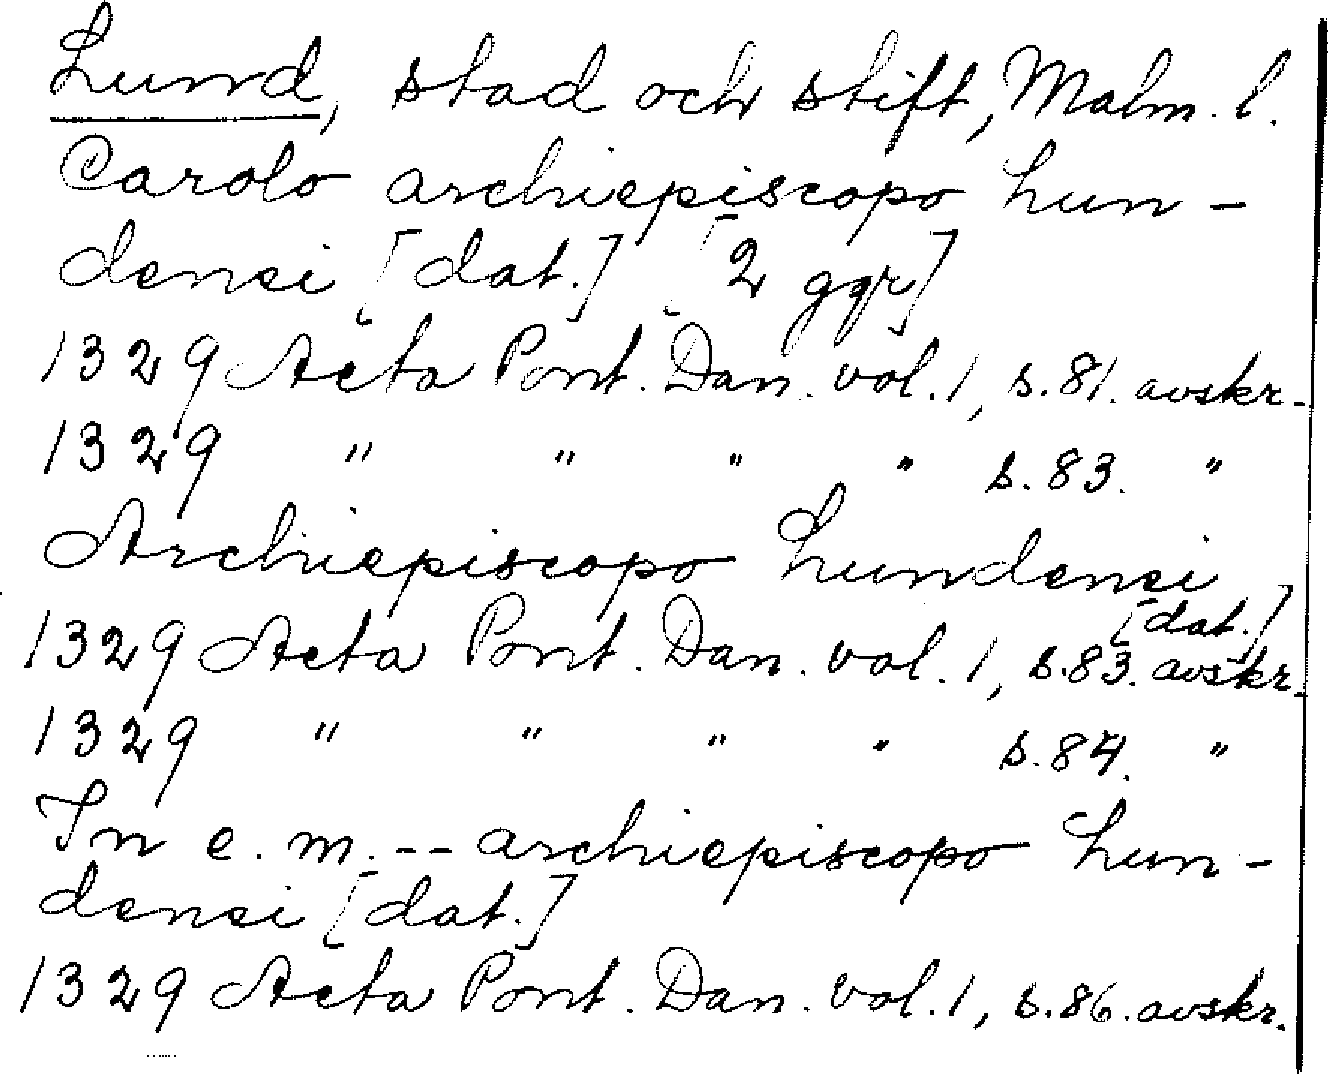 Lund, stad och stift, Malm. l.
Carolo archiepiscopo Lun-
densi [dat.] [2 ggr]
1329 Acta Pont. Dan. vol. 1, s. 81. avskr.
1329 " " " " s. 83. "
Archiepiscopo Lundensi
[dat.]
1329 Acta Pont. Dan. vol. 1, s. 83. avskr.
1329 " " " " s. 84. "
In e. m. -- archiepiscopo Lun-
densi [dat.]
1329 Acta Pont. Dan. vol. 1, s. 86. avskr.